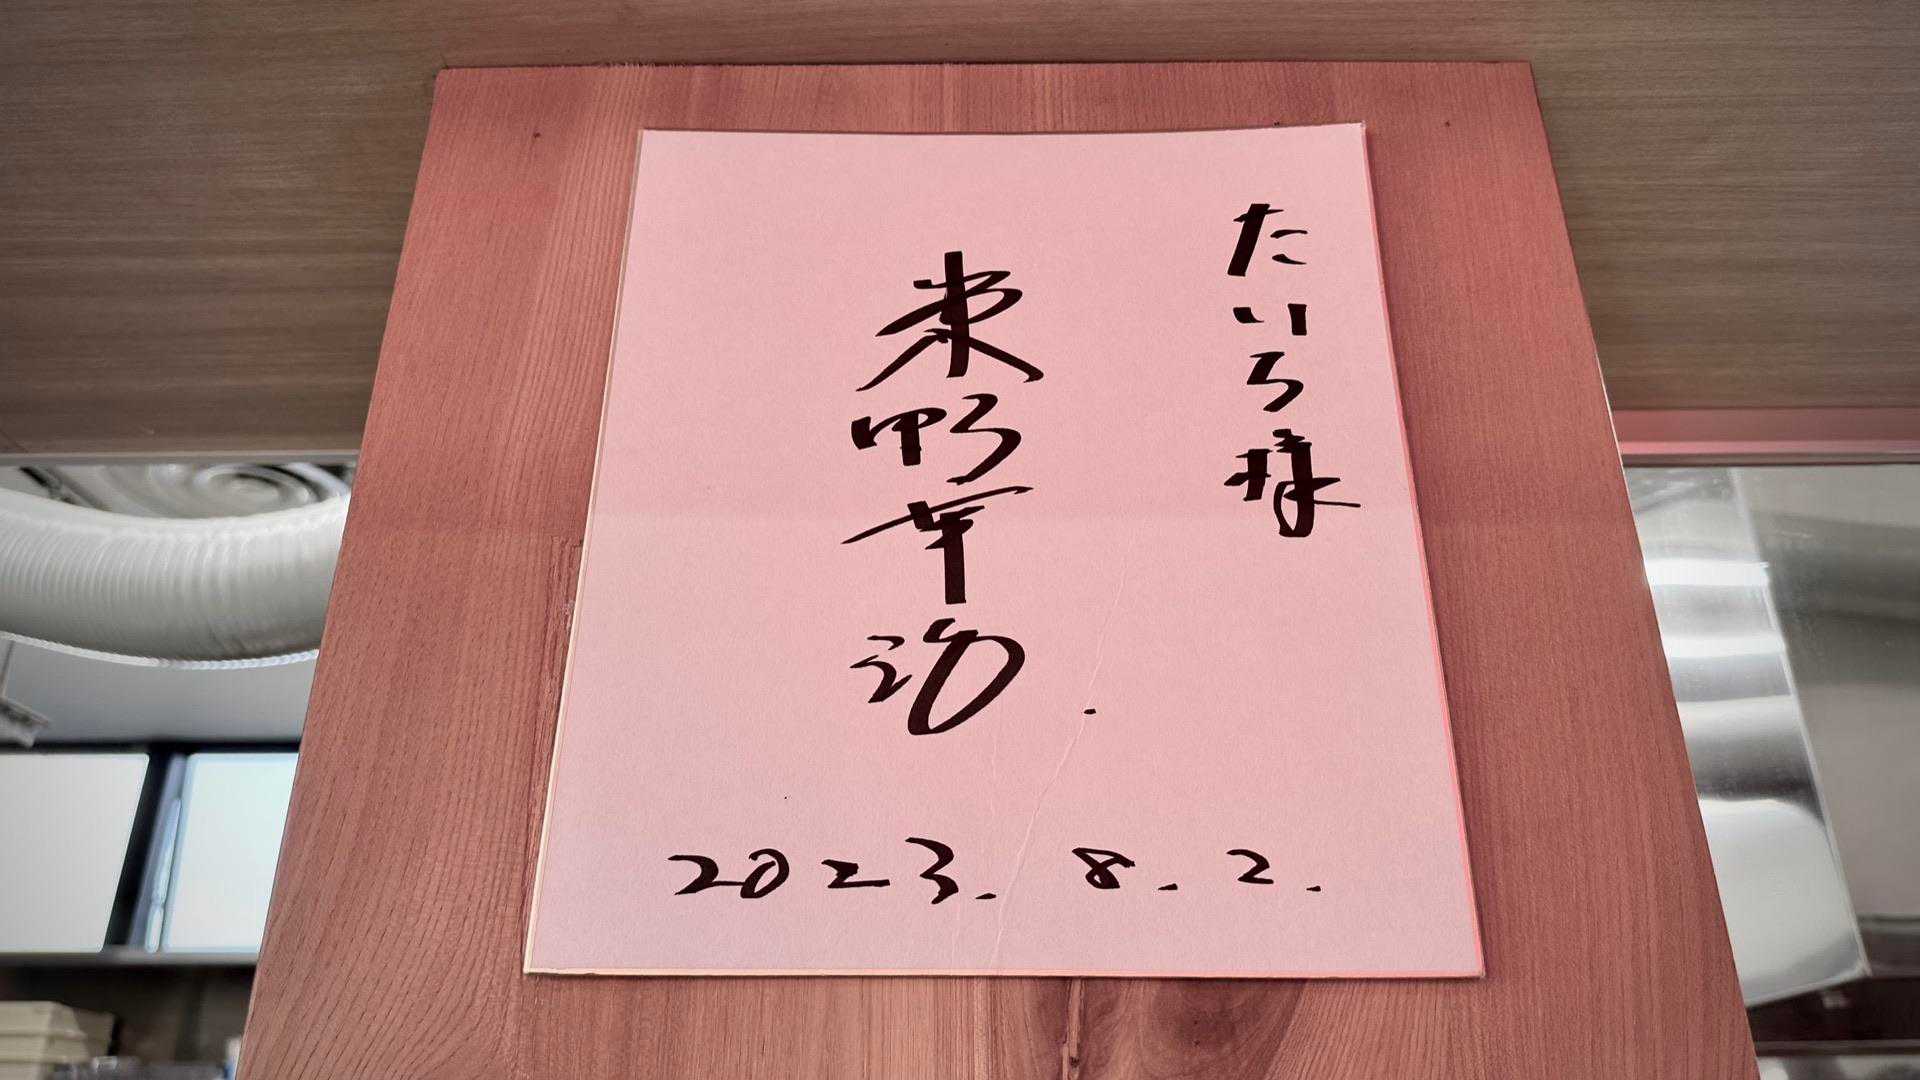 たいろ様
東野幸治.
2023. 8. 2.